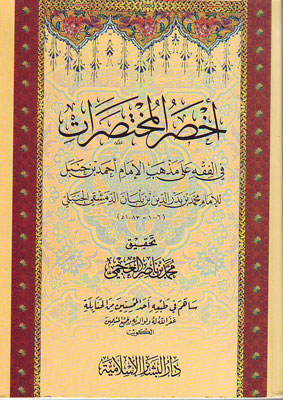 أخصر المختصرات
في الفقه على مذهب الإمام أحمد بن حنبل
للإمام محمد بن بدر الدين بن بلبان الدمشقي الحنبلي
(١٠٠٦ - ١٠٨٣ هـ)
تحقيق
محمد ناصر العجمي
ساهم في طبعه أحد المحسنين من الحنابلة
غفر الله له ولوالديه ولجميع المسلمين
الكويت
دار البشائر الإسلامية